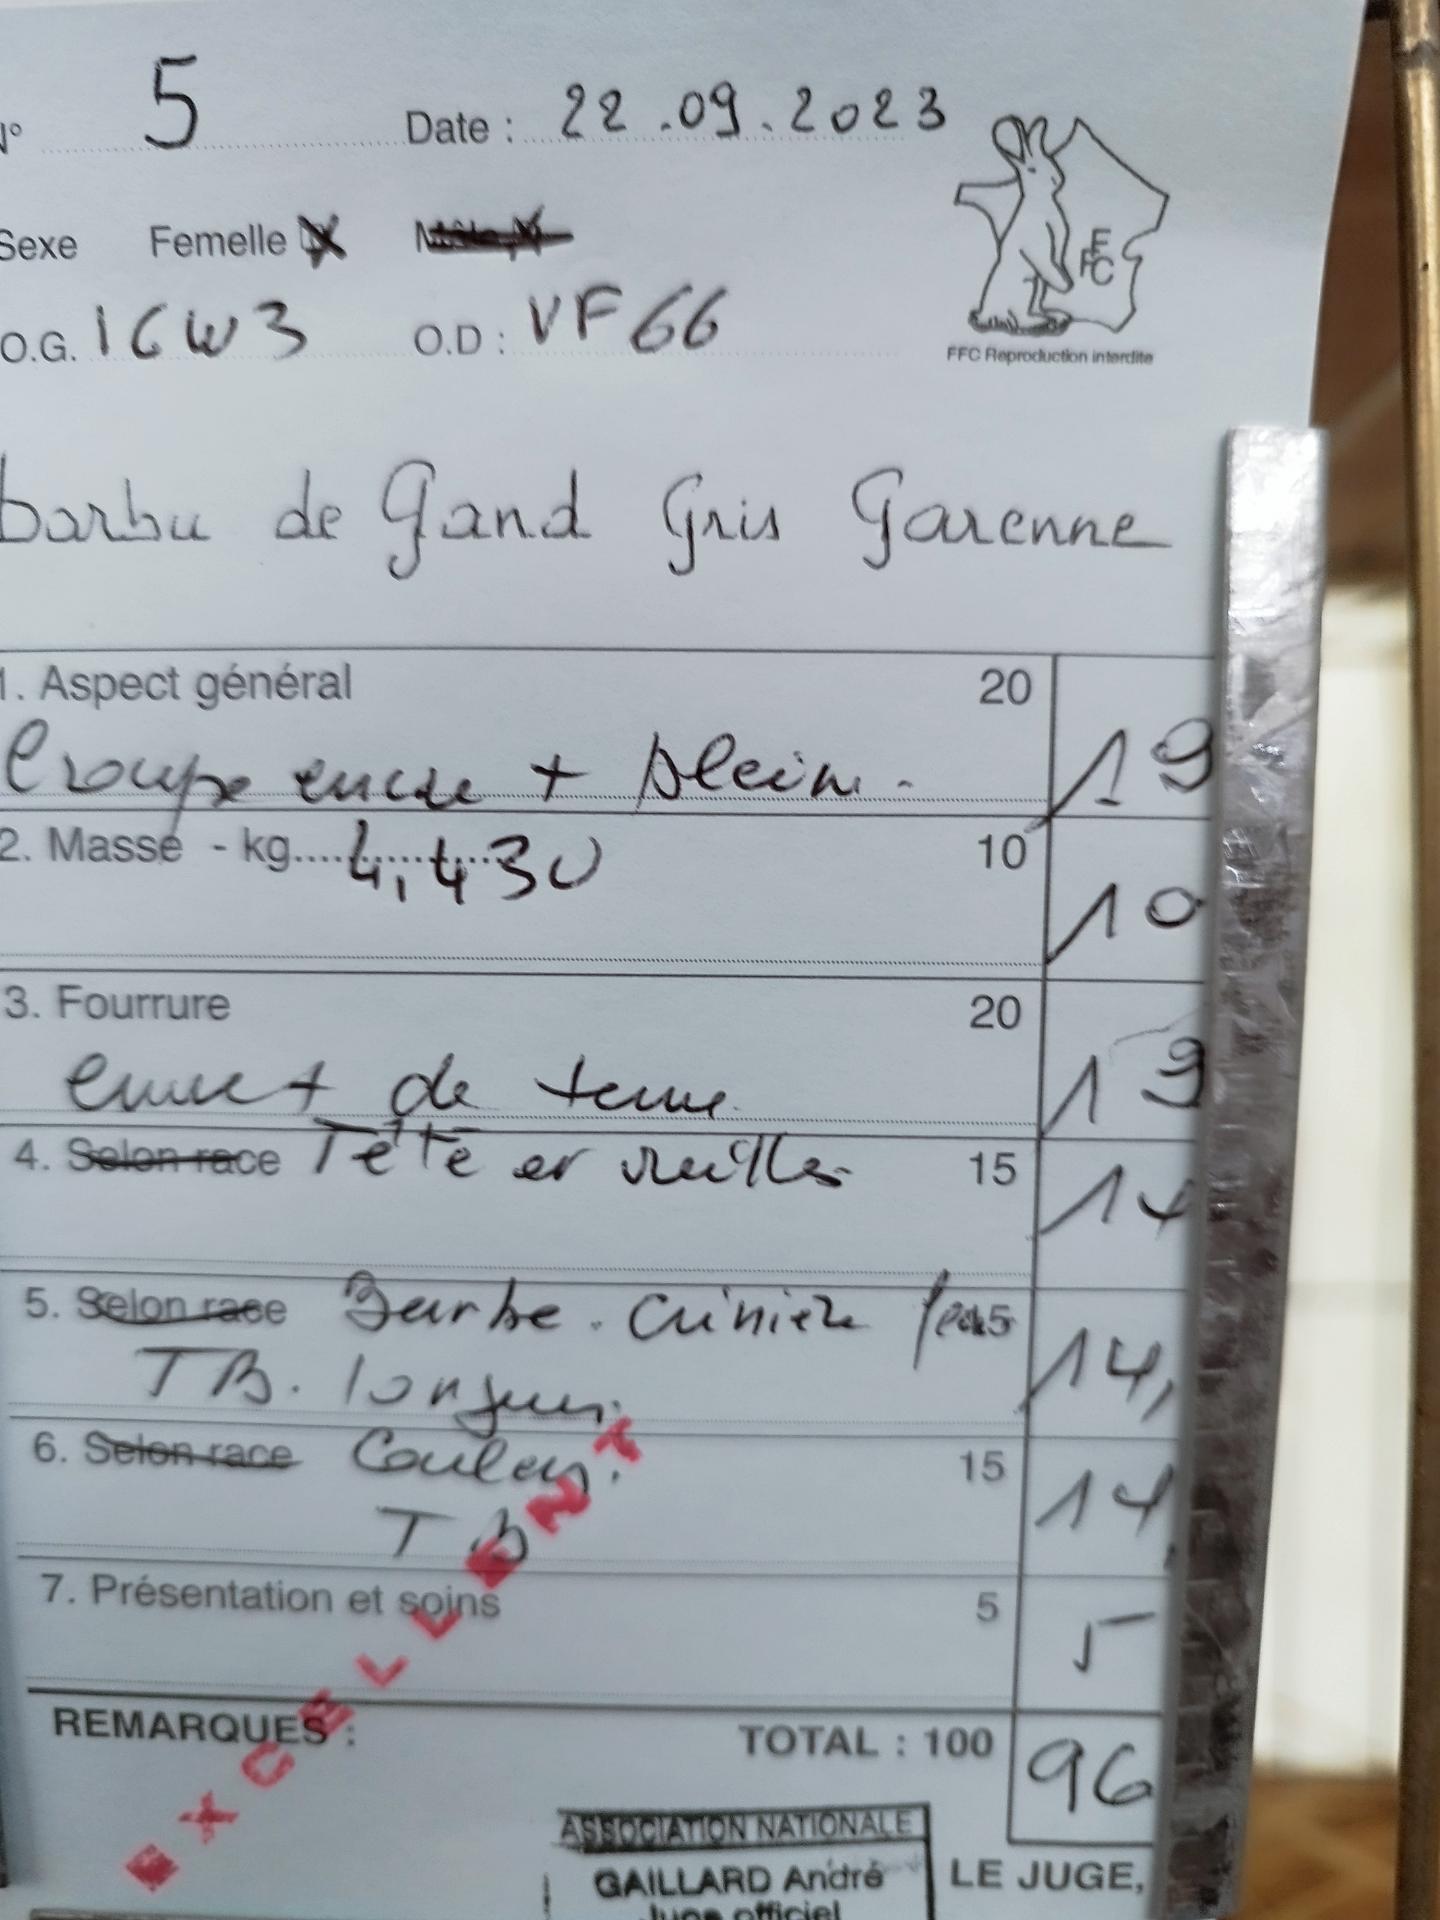 N° 5 Date : 22.09.2023
Sexe Femelle X
O.G. 1GW3 O.D : VF66
FFC
FFC Reproduction interdite
barbu de Gand Gris Garenne
1. Aspect général 20 19
Croupe encore + plein.
2. Masse - kg 4,430 10 10
3. Fourrure 20 19
encore + de tenue.
4. Selon race Tête et oreilles 15 14
5. Selon race Barbe. Criniere 15 14,
TB. longueur.
6. Selon race Couleur. 15 14,
TB
7. Présentation et soins 5 5
EXCELLENT
REMARQUES : TOTAL : 100 96
ASSOCIATION NATIONALE
GAILLARD André LE JUGE,
Juge officiel